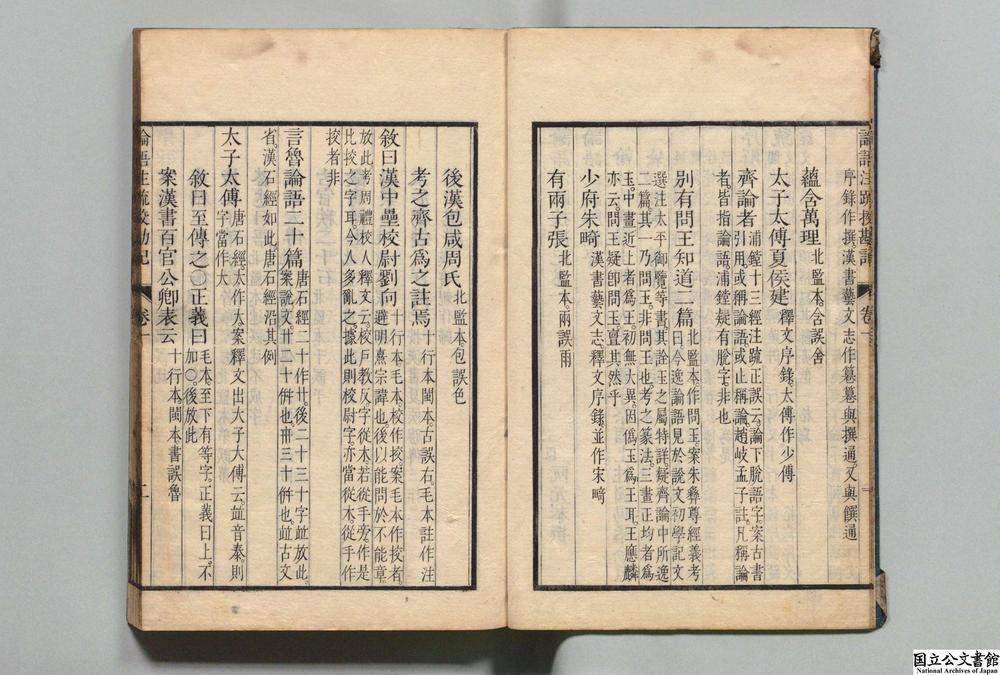 論語注疏挍勘記 卷一 一
序錄作撰漢書藝文志作篹篹與撰通又與饌通
蘊含萬理 北監本含誤舍
太子太傅夏侯建 釋文序錄太傅作少傅
齊論者 浦鏜十三經注疏正誤云論下脫語字案古書
引用或稱論語或止稱論趙岐孟子註凡稱論
者皆指論語浦鏜疑有脫字非也
別有問王知道二篇 北監本作問玉案朱彝尊經義考
曰今逸論語見於說文初學記文
選注太平御覽等書其詮玉之屬特詳疑齊論中所逸
二篇其一乃問玉非問王也考之篆法三畫正均者爲
玉中畫近上者爲王初無大異因僞玉爲王耳王應麟
亦云問王疑卽問玉亶其然乎
少府朱畸 漢書藝文志釋文序錄並作宋畸
有兩子張 北監本兩誤雨
後漢包咸周氏 北監本包誤色
考之齊古爲之註焉 十行本閩本古誤右毛本註作注
敘曰漢中壘校尉劉向 十行本毛本校作挍案毛本作挍者
避明熹宗諱也後以能問於不能章
放此考周禮校人釋文云校戶教反字從木若從手旁作是
比挍之字耳今人多亂之據此則校尉字亦當從木從手作
挍者非
言魯論語二十篇 唐石經二十作廿後二十三十字竝放此
案說文廿二十倂也卅三十倂也竝古文
省漢石經如此唐石經沿其例
太子太傅 唐石經太作大案釋文出大子大傅云竝音泰則
字當作大
敘曰至傳之○正義曰 毛本至下有等字正義曰上不
加○後放此
案漢書百官公卿表云 十行本閩本書誤魯
論語注疏挍勘記 卷一 二
国立公文書館
National Archives of Japan